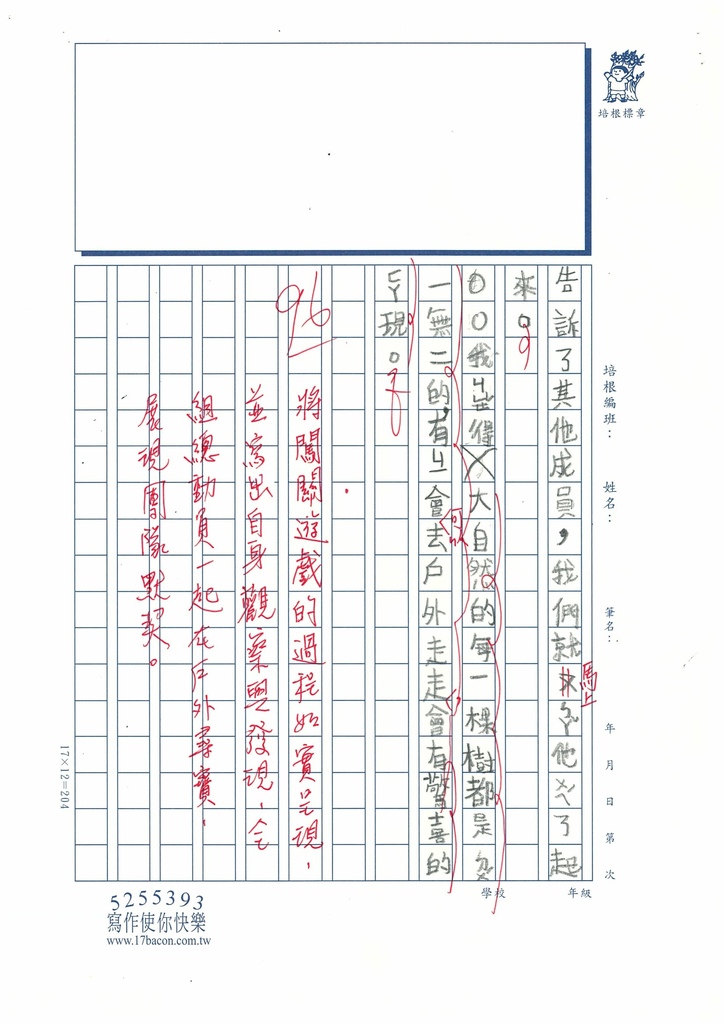 培根標章
培根編班：
姓名：
筆名：
年 月 日 第 次
學校
年級
告訴了其他成員，我們就ㄅㄚˇ他ㄨㄚ了起
馬上
來。
我ㄐㄩㄝ得大自然的每一棵樹都是
一無二的，有ㄐㄧ會去戶外走走會有驚喜的
ㄈㄚ現。
96
將闖關遊戲的過程如實呈現，
並寫出自身觀察與發現，全
組總動員一起在戶外尋寶，
展現團隊默契。
17×12=204
5255393
寫作使你快樂
www.17bacon.com.tw